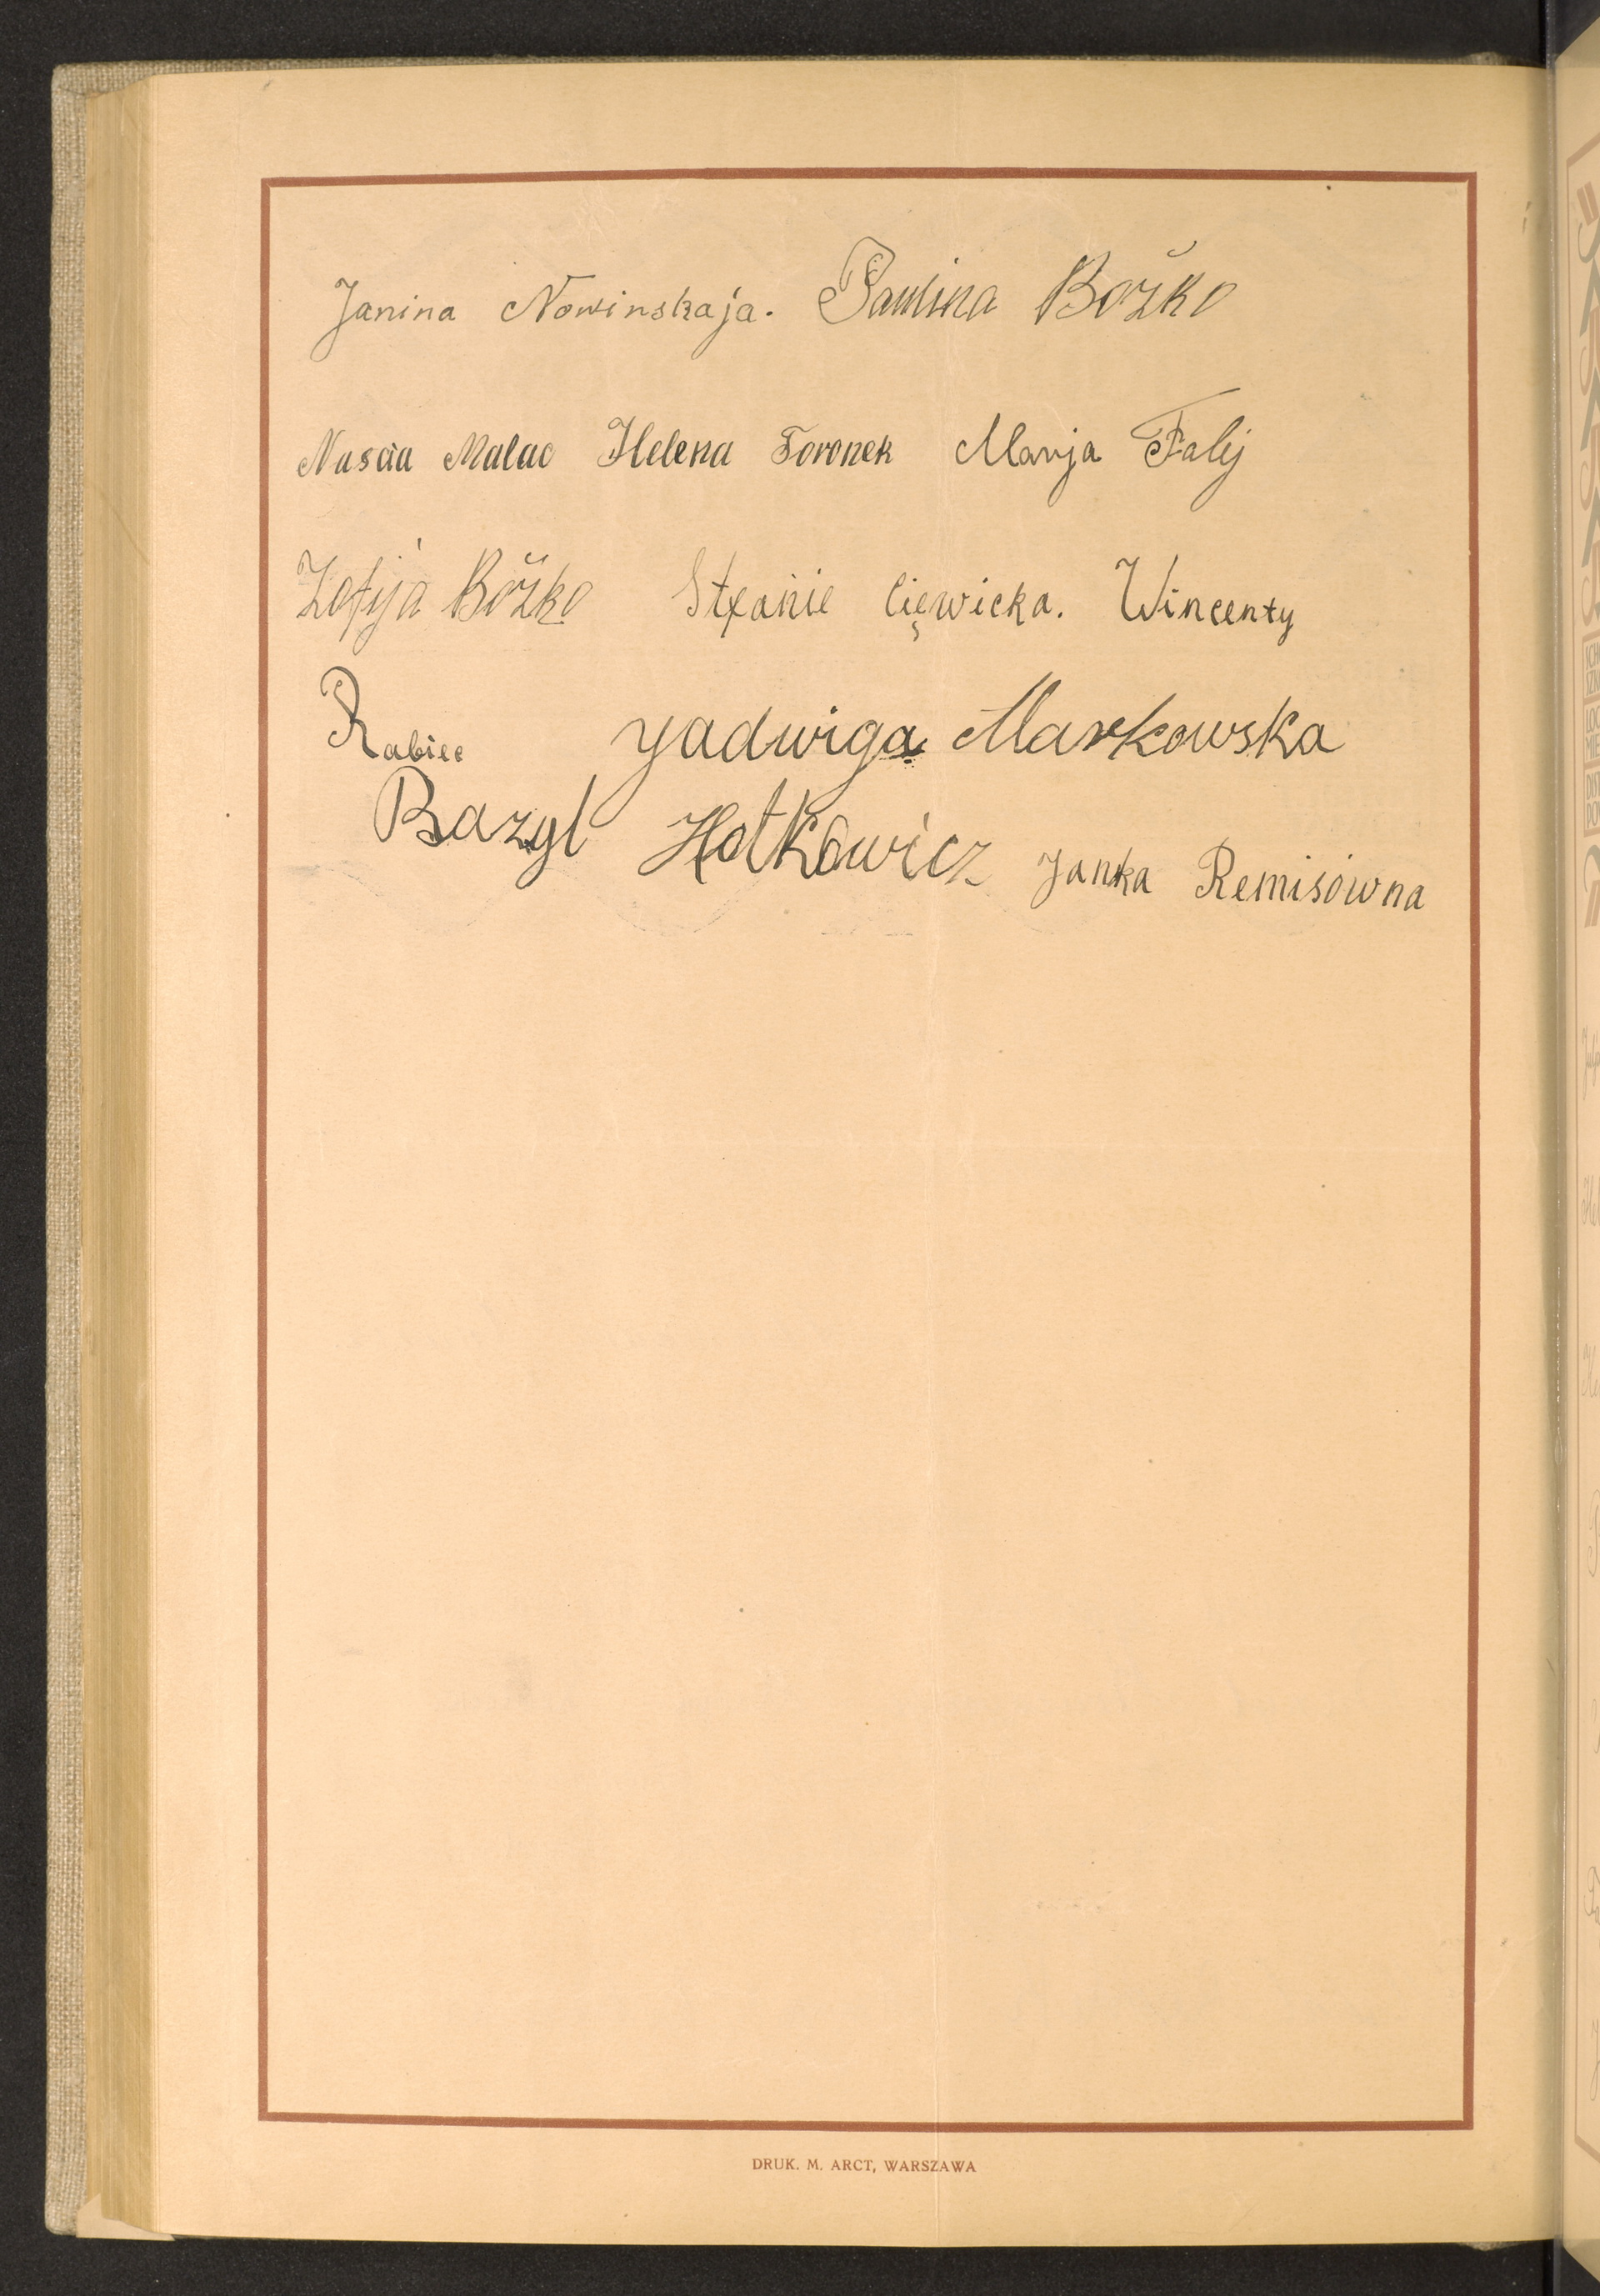 Janina Nowinskaja. Paulina Božko
Nascia Malac Helena Toronek Marja Falij
Zofija Božko Stefanie Wincenty
Rabiec Yadwiga Markowska
Bazyl Hotkowicz Janka Remisówna
DRUK. M. ARCT, WARSZAWA